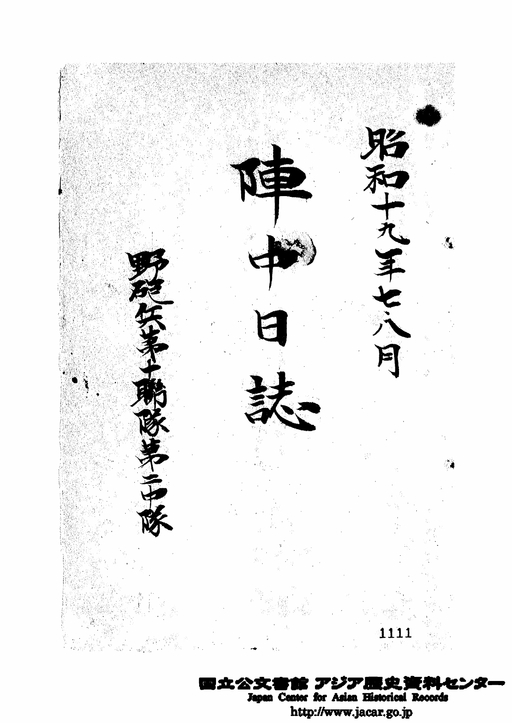 昭和十九年七、八月
陣中日誌
野砲兵第十聯隊第二中隊
1111
国立公文書館 アジア歴史資料センター
Japan Center for Asian Historical Records
http://www.jacar.go.jp